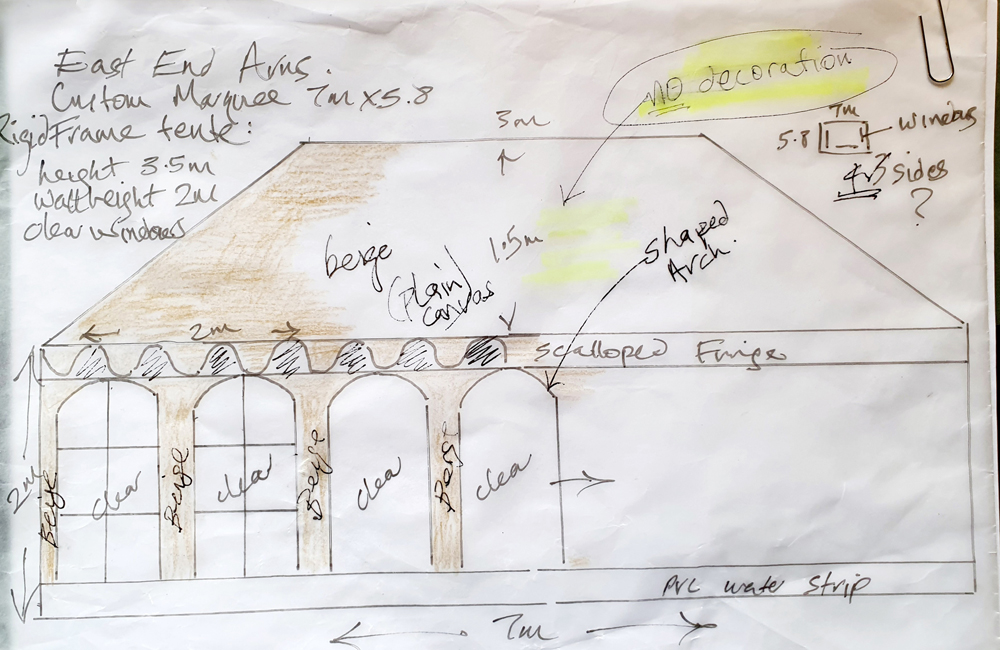 East End Arms.
Custom Marquee 7m x 5.8
Rigid Frame tent:
height 3.5m
wall height 2m
clear windows
NO decoration
3m
7m
5.8
windows
4 v 3 sides
?
beige
(Plain)
canvas
1.5m
Shaped
Arch.
2m
Scalloped Fringe
2m
Beige
clear
Beige
clear
Beige
clear
Beige
clear
PVC water strip
7m